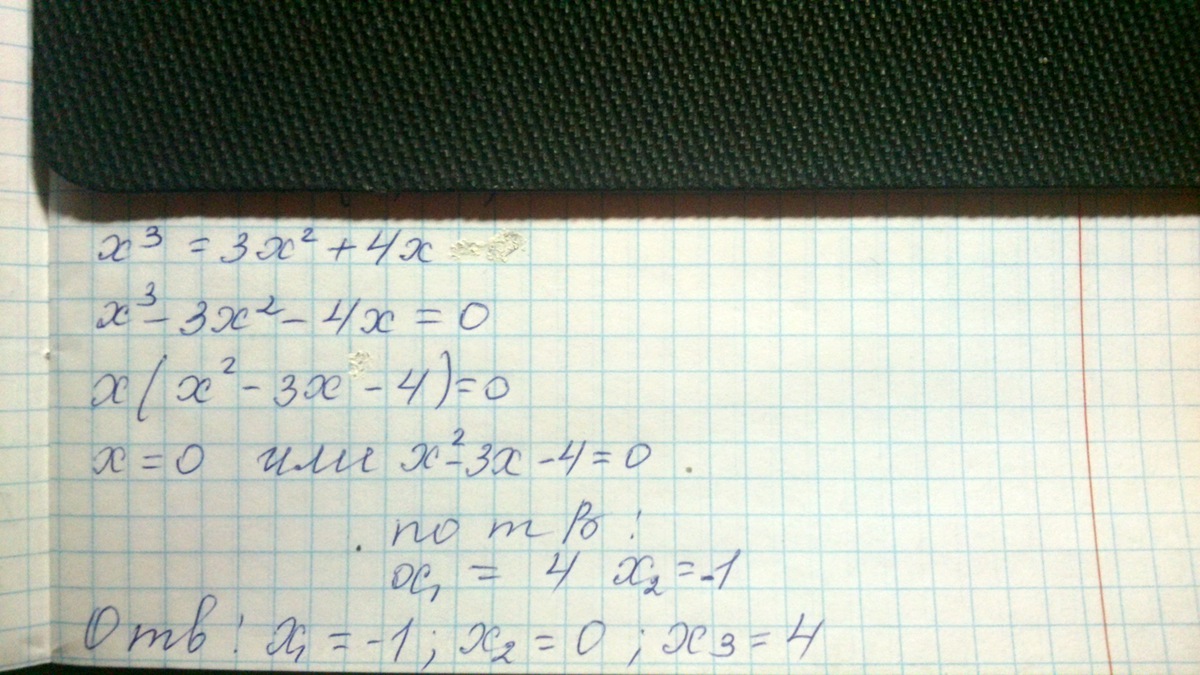 x³ = 3x² + 4x
x³ - 3x² - 4x = 0
x(x² - 3x - 4) = 0
x = 0 или x² - 3x - 4 = 0
по т В:
x₁ = 4 x₂ = -1
Отв: x₁ = -1; x₂ = 0; x₃ = 4